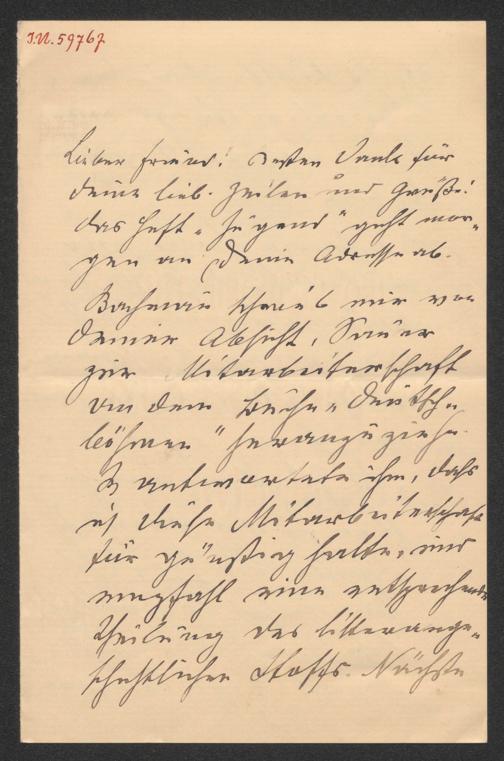 I.N. 59767
Lieber Freund! Besten Dank für
deine lieb. Zeilen und Grüße!
das Heft „Jugend" geht mor-
gen an Deine Adresse ab.
Bachmann schrieb mir von
deiner Absicht, Sauer
zur Mitarbeiterschaft
an dem Buche „Deutsch-
böhmen" heranzuziehn.
antwortete ihm, dass
ich diese Mitarbeiterschaft
für günstig halte, und
empfahl eine entsprechende
Theilung des litterarge-
schichtlichen Stoffs. Nächste